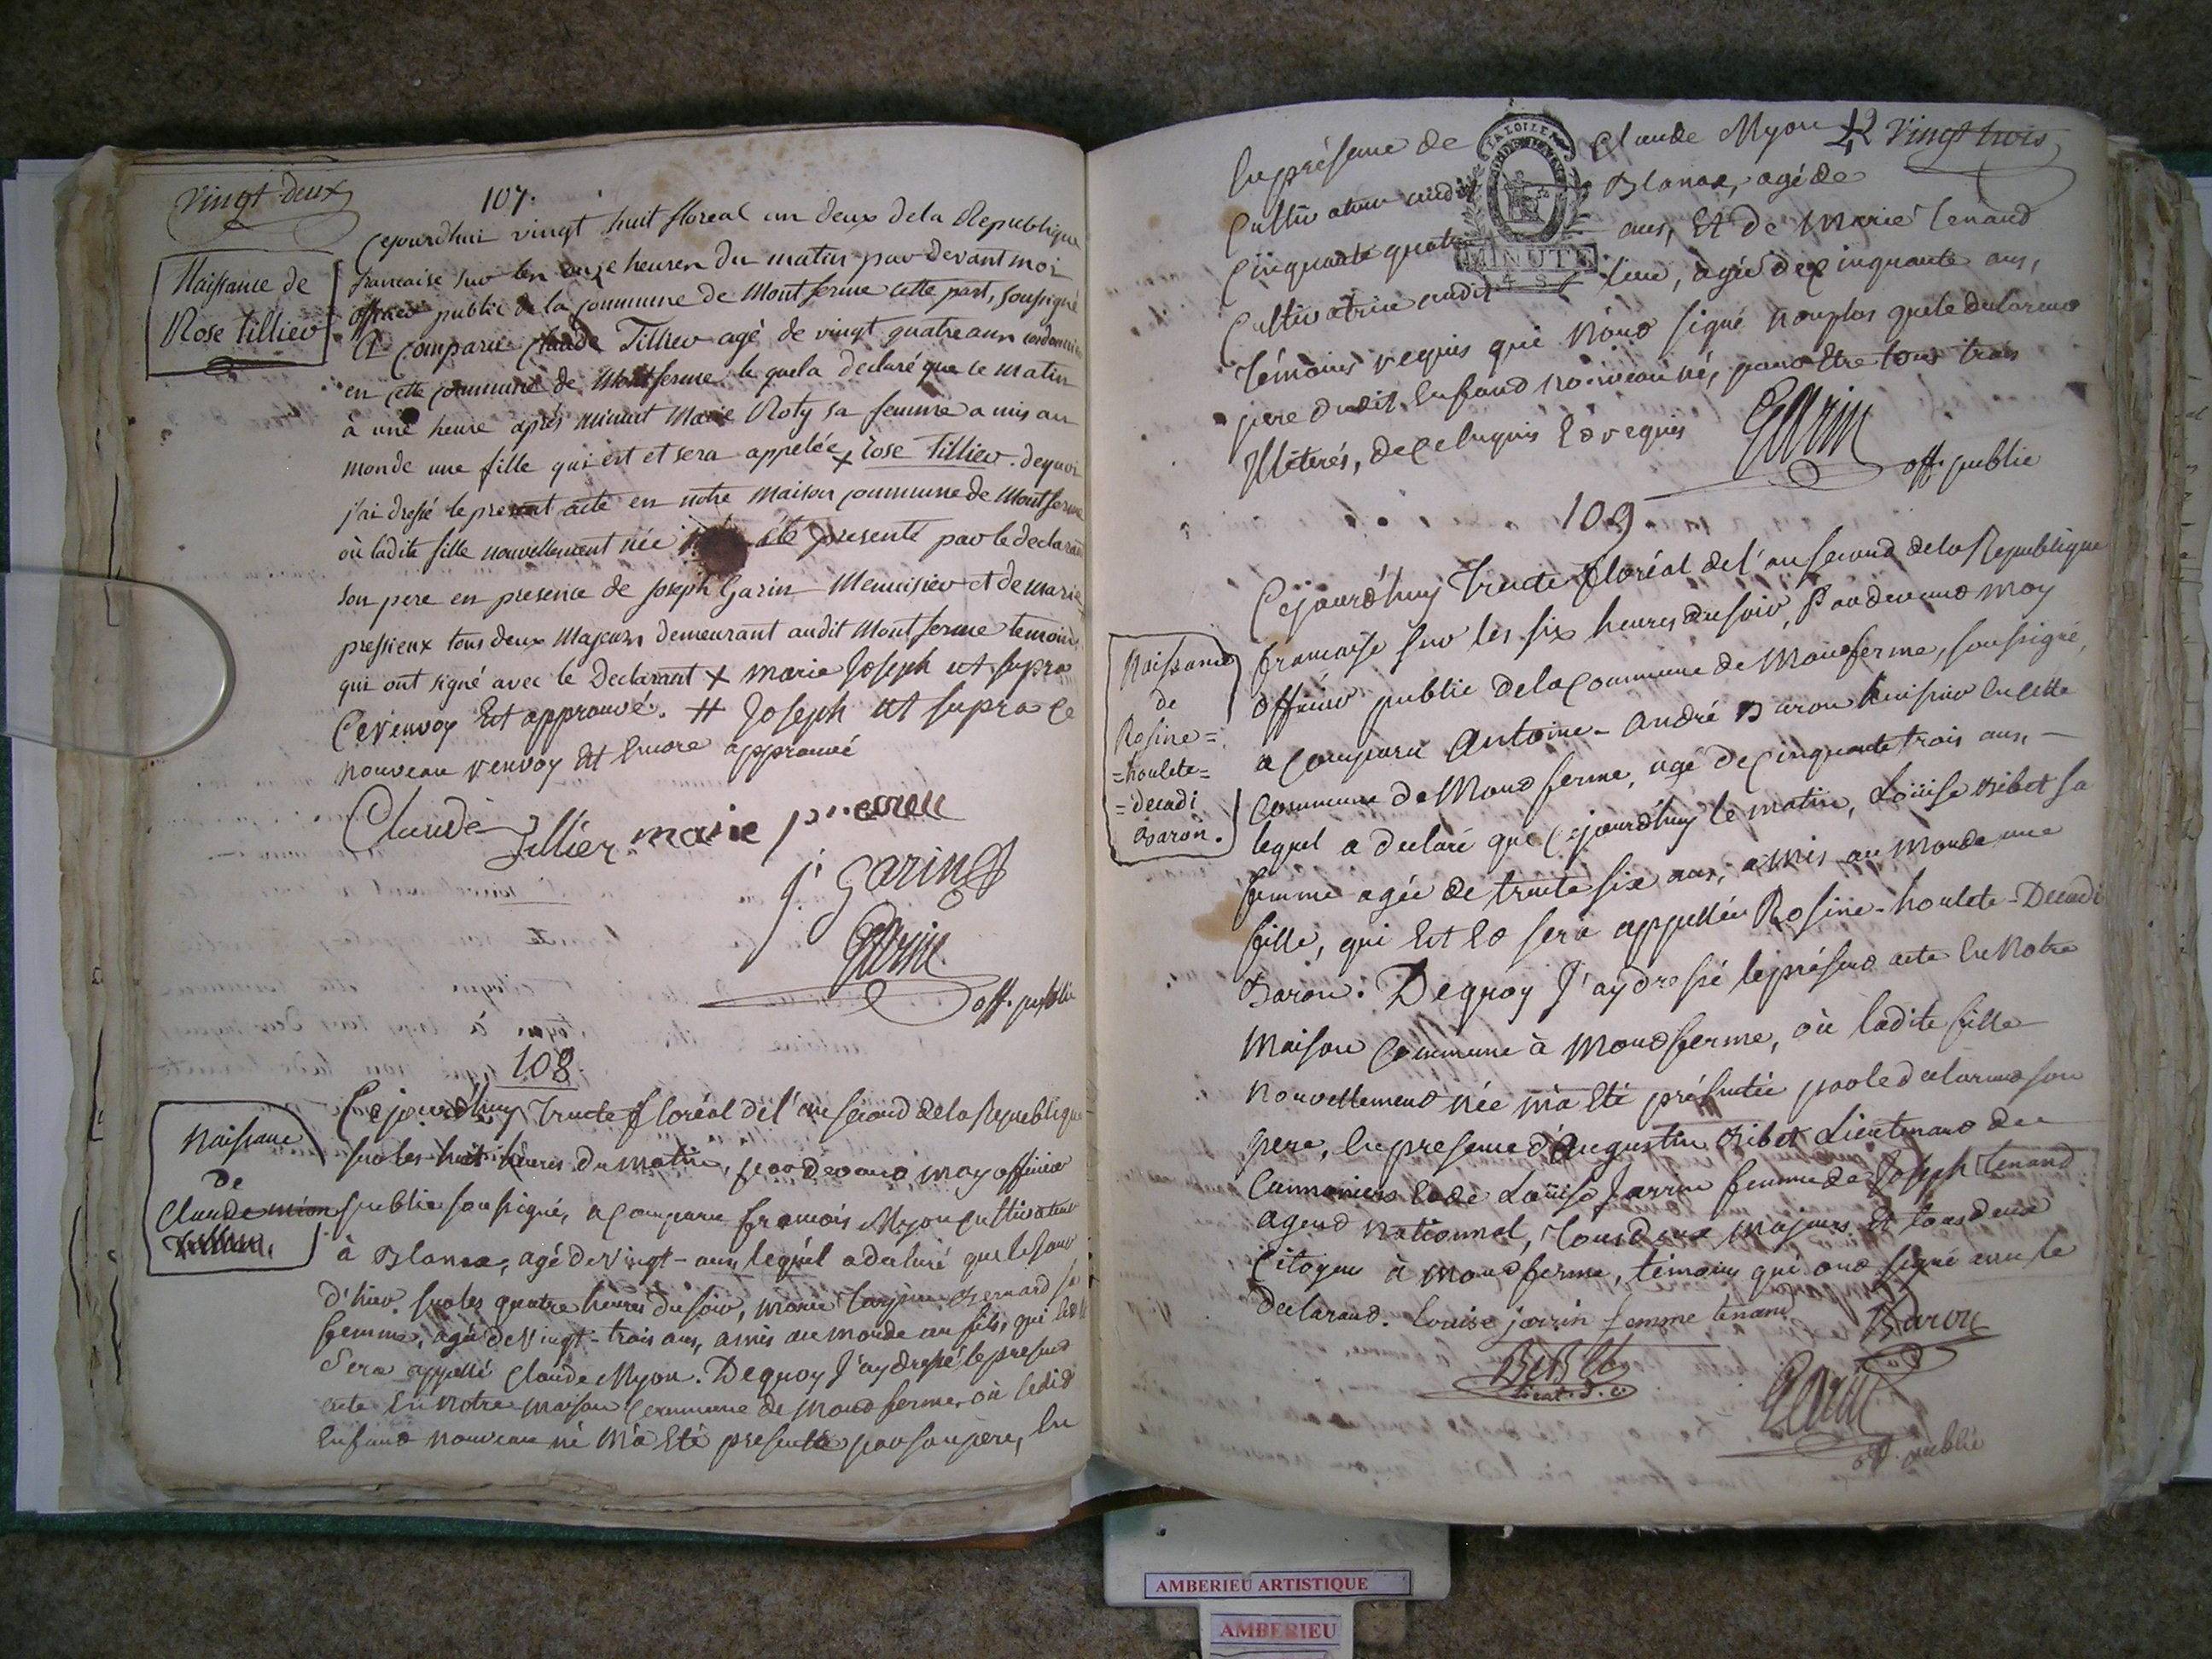 vingt-deux
107.
Naissance de
Rose tillier
Cejourdhui vingt huit floreal an deux de la Republique
francaise sur les onze heures du matin par devant moi
officier public de la commune de Montferme cette part, soussigné
A Comparu Claude Tillier agé de vingt quatre ans cordonnier
en cette commune de Montferme le quel a declaré que ce matin
à une heure après minuit Marie Roty sa femme a mis au
monde une fille qui est et sera appelée + Rose Tillier. de quoi
j'ai dressé le present acte en notre maison commune de Montferme
où ladite fille nouvellement née été presenté par le declarant
son pere en presence de joseph Garin Menuisier et de marie
pressieux tous deux Majeurs demeurant audit Montferme temoins
qui ont signé avec le Declarant + marie Joseph ut supra
Ce renvoy Est approuvé. # Joseph ut supra ce
nouveau renvoy Est Encore approuvé
Claude Tillier marie
j. Garin
Garin
off. public
108.
Naissance
de
Claude mion
Cejourd'huy Trente floréal de l'an second de la Republique
sur les huit heures du matin, par devant moy officier
public soussigné, a comparu francois Myon cultivateur
à Blanaz, agé de vingt- ans, lequel a declaré que le jour
d'hier sur les quatre heures du soir, marie Bernard sa
femme, agée de vingt-trois ans, a mis au monde un fils, qui est et
Sera appellé Claude Myon. De quoy J'ay dressé le present
acte En notre maison Commune de Montferme, où ledit
Enfant nouveau né M'a Eté presenté par son pere, En
vingt trois
En présence de Claude Myon
Cultivateur audit Blanaz, agé de
Cinquante quatre ans, Et de Marie tenand
Cultivatrice audit lieu, agée de cinquante ans,
LA LOI LE
MINUTE
Témoins requis qui n'ont signé non plus que le declarant
pere dudit Enfant nouveau né, pour Etre tous trois
Illiterés, de ce Enquis Et requis
Garin
off. public
109
Naissance
de
Rosine=
=houlete=
=decadi
Baron.
Cejourd'huy Trente floréal de l'an second de la Republique
francaise sur les six heures du soir, Pardevant moy
officier public de la Commune de Montferme, soussigné,
a comparu Antoine-André Baron huissier En cette
Commune de Montferme, agé de cinquante trois ans,-
lequel a declaré que Cejourd'huy le matin, Loüise Bibet sa
femme agée de trente six ans, a mis au monde une
fille, qui Est Et sera appellée Rosine-houlete-Decadi
Baron. De quoy J'ay dressé le présent acte En Notre
Maison Commune à Montferme, où ladite fille
nouvellement née m'a Eté présentée par le declarant son
pere, En presence d'augustin Bibet Lieutenant de
Canonniers Et de Loüise Jarrin femme de Joseph Tenand
agent national, Tous deux majeurs Et tous deux
Citoyens à Montferme, témoins qui ont signé avec le
declarant. Louise jarrin femme tenand
Baron
BiBEt
lieut. d. c.
Garin
off. public
AMBERIEU ARTISTIQUE
AMBERIEU